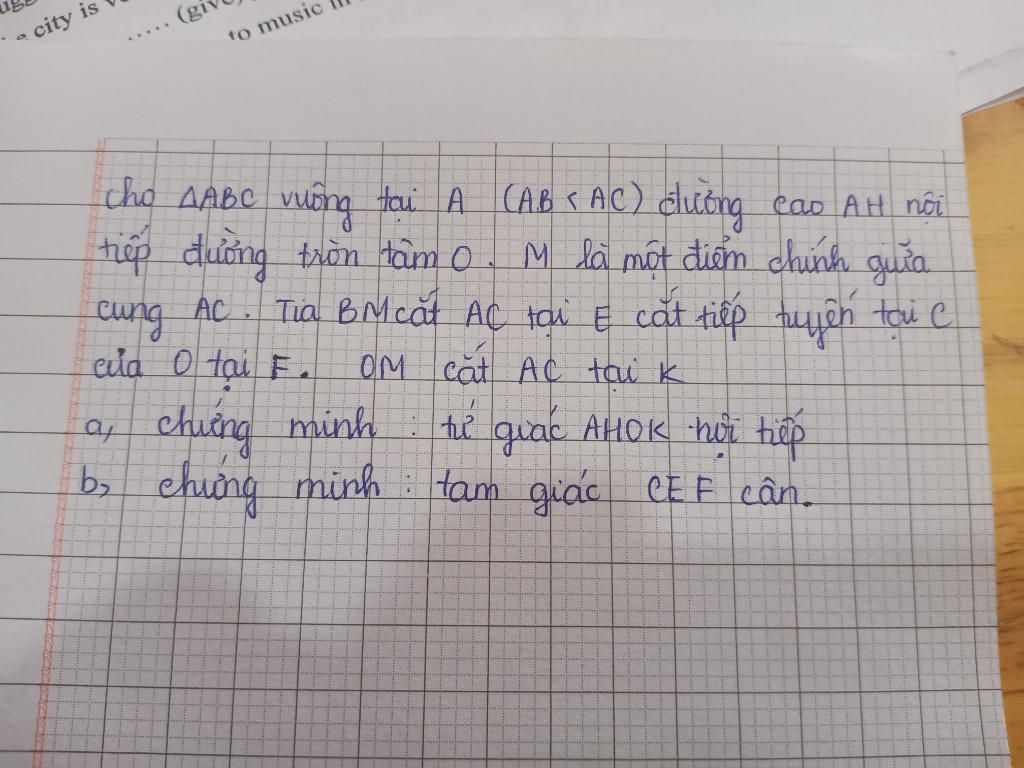 city is
..... (give)
to music in
cho ΔABC vuông tại A (AB < AC) đường cao AH nội
tiếp đường tròn tâm O. M là một điểm chính giữa
cung AC. Tia BM cắt AC tại E cắt tiếp tuyến tại C
của O tại F. OM cắt AC tại K
a, chứng minh : tứ giác AHOK nội tiếp
b, chứng minh : tam giác CEF cân.